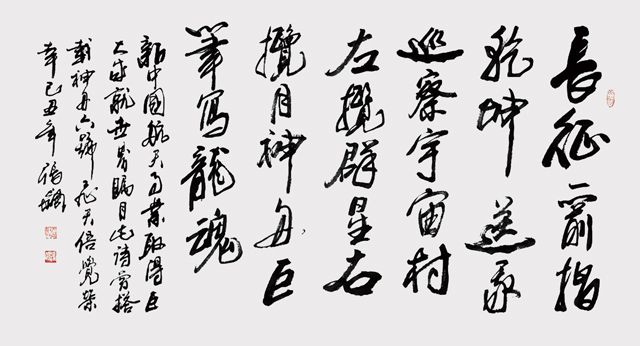 長征一箭指
乾坤送我
巡察宇宙村
左攬群星右
攬月神舟巨
筆寫龍魂
新中國航天事業取得巨
大成就世界矚目此詩曾搭
載神舟六號飛天倍覺榮
幸己丑年